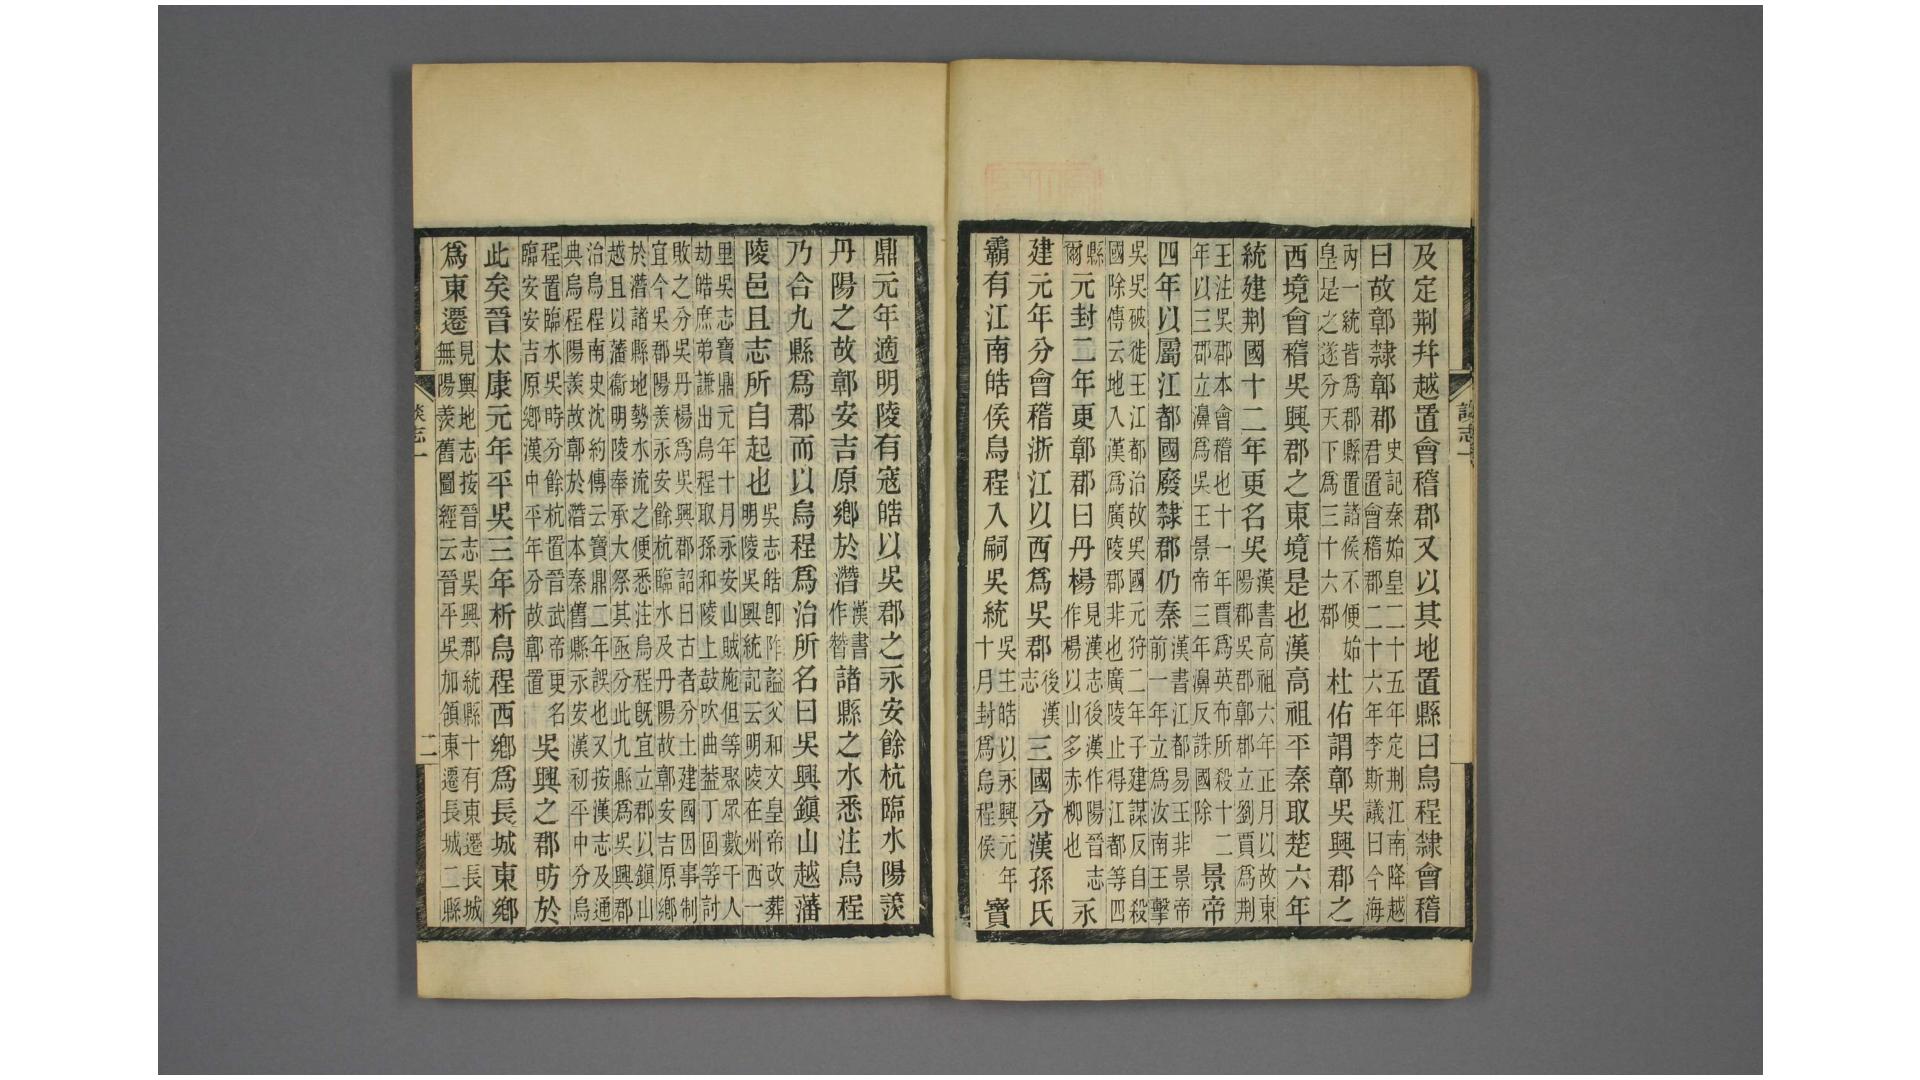 談志一
及定荆并越置會稽郡又以其地置縣曰烏程隸會稽
曰故鄣隸鄣郡史記秦始皇二十五年定荆江南降越
君置會稽郡二十六年李斯議曰今海
内一統皆爲郡縣置諸侯不便始
皇是之遂分天下爲三十六郡杜佑謂鄣吳興郡之
西境會稽吳興郡之東境是也漢高祖平秦取楚六年
統建荆國十二年更名吳漢書高祖六年正月以故東
陽郡吳郡鄣郡立劉賈爲荆
王注吳郡本會稽也十一年賈爲英布所殺十二
年以三郡立濞爲吳王景帝三年濞反誅國除景帝
四年以屬江都國廢隸郡仍秦漢書江都易王非景帝
前一年立爲汝南王擊
吳吳破徙王江都治故吳國元狩二年子建謀反自殺
國除傳云地入漢爲廣陵郡非也廣陵止得江都等四
縣
爾元封二年更鄣郡曰丹楊見漢志後漢作陽晉志
作楊以山多赤柳也永
建元年分會稽浙江以西爲吳郡後漢
志三國分漢孫氏
霸有江南皓侯烏程入嗣吳統吳主皓以永興元年
十月封爲烏程侯寶
鼎元年適明陵有寇皓以吳郡之永安餘杭臨水陽羨
丹陽之故鄣安吉原鄉於潛漢書
作朁諸縣之水悉注烏程
乃合九縣爲郡而以烏程爲治所名曰吳興鎭山越藩
陵邑且志所自起也吳志皓卽阼謚父和文皇帝改葬
明陵吳興統記云明陵在州西一
里吳志寶鼎元年十月永安山賊施但等聚眾數千人
劫皓庶弟謙出烏程取孫和陵上鼓吹曲葢丁固等討
敗之分吳丹楊爲吳興郡詔曰古者分土建國因事制
宜今吳郡陽羨永安餘杭臨水及丹陽故鄣安吉原鄉
於潛諸縣地勢水流之便悉注烏程旣宜立郡以鎭山
越且以藩衞明陵奉承大祭其亟分此九縣爲吳興郡
治烏程南史沈約傳云寶鼎二年誤也又按漢志及通
典烏程陽羨故鄣於潛本秦舊縣永安漢初平中分烏
程置臨水吳時分餘杭置晉武帝更名
臨安安吉原鄉漢中平年分故鄣置吳興之郡昉於
此矣晉太康元年平吳三年析烏程西鄉爲長城東鄉
爲東遷見輿地志按晉志吳興郡統縣十有東遷長城
無陽羨舊圖經云晉平吳加領東遷長城二縣
談志一
二